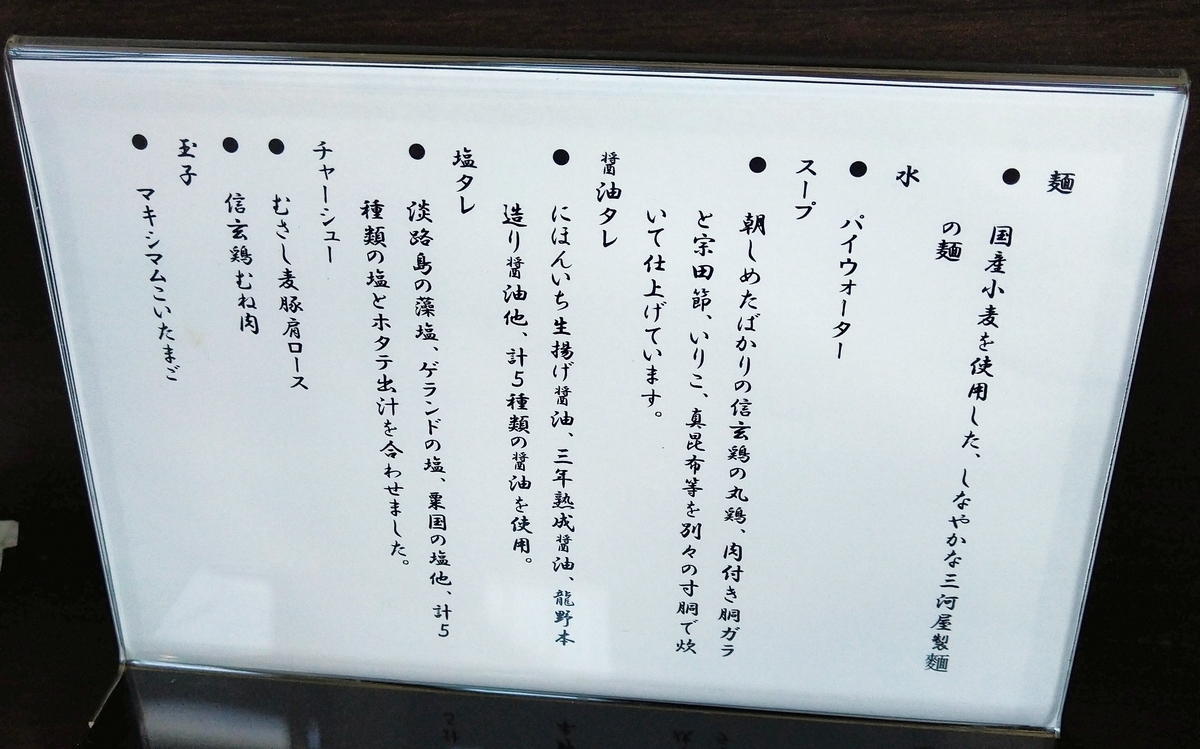 麺
● 国産小麦を使用した、しなやかな三河屋製麺
の麺
水
● パイウォーター
スープ
● 朝しめたばかりの信玄鶏の丸鶏、肉付き胴ガラ
と宗田節、いりこ、真昆布等を別々の寸胴で炊
いて仕上げています。
醤油タレ
● にほんいち生揚げ醤油、三年熟成醤油、龍野本
造り醤油他、計5種類の醤油を使用。
塩タレ
● 淡路島の藻塩、ゲランドの塩、粟国の塩他、計5
種類の塩とホタテ出汁を合わせました。
チャーシュー
● むさし麦豚肩ロース
● 信玄鶏むね肉
玉子
● マキシマムこいたまご